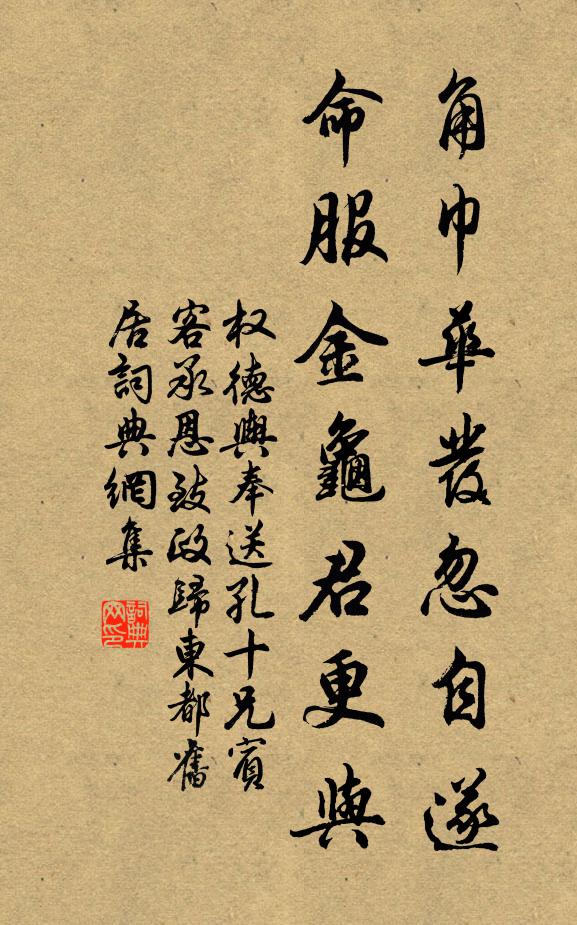 角巾華髮忽自遂
命服金龜君更與
权德輿奉送孔十兄賓
客承恩致政歸東都舊
居詞典網集
詞典
网印